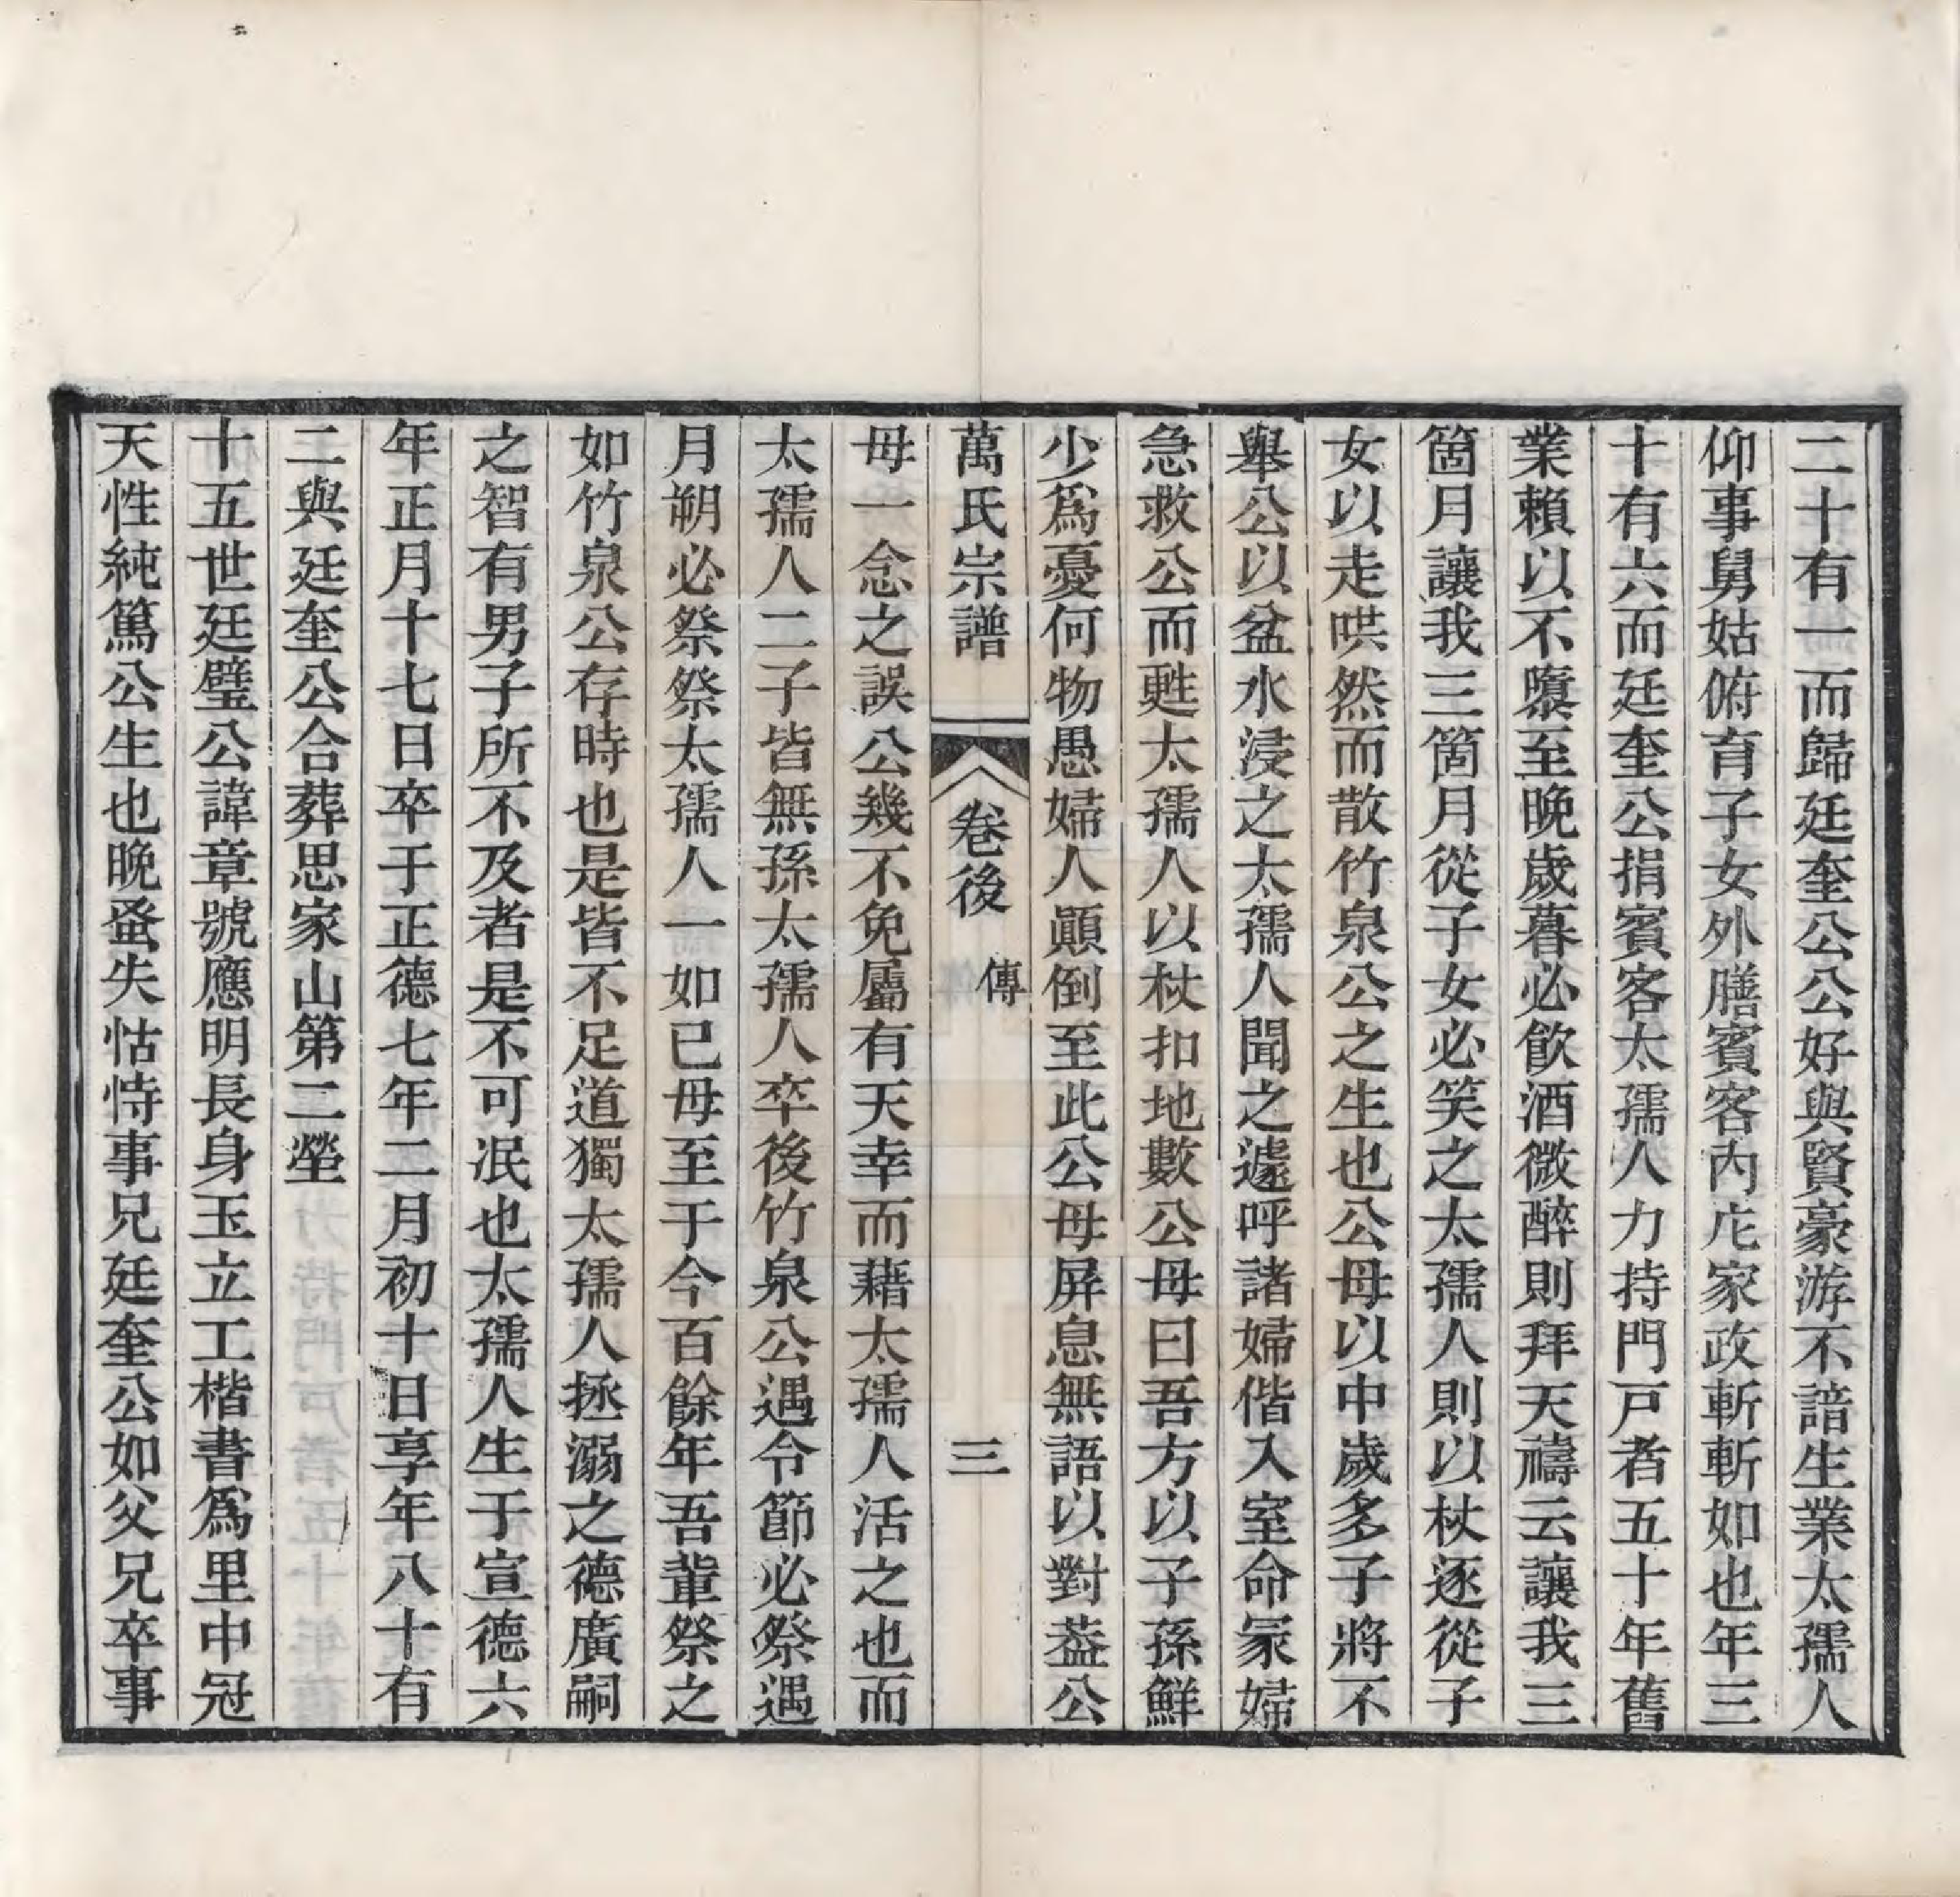 二十有一而歸廷奎公公好與賢豪游不諳生業太孺人
仰事舅姑俯育子女外膳賓客內庀家政斬斬如也年三
十有六而廷奎公捐賓客太孺人力持門戸者五十年舊
業賴以不隳至晚歲暮必飮酒微醉則拜天禱云讓我三
箇月讓我三箇月從子女必笑之太孺人則以杖逐從子
女以走哄然而散竹泉公之生也公母以中歲多子將不
舉公以盆水浸之太孺人聞之遽呼諸婦偕入室命冢婦
急救公而甦太孺人以杖扣地數公母曰吾方以子孫鮮
少爲憂何物愚婦人顚倒至此公母屏息無語以對葢公
萬氏宗譜 卷後 傳 三
母一念之誤公幾不免屬有天幸而藉太孺人活之也而
太孺人二子皆無孫太孺人卒後竹泉公遇令節必祭遇
月朔必祭祭太孺人一如已母至于今百餘年吾輩祭之
如竹泉公存時也是皆不足道獨太孺人拯溺之德廣嗣
之智有男子所不及者是不可泯也太孺人生于宣德六
年正月十七日卒于正德七年二月初十日享年八十有
二與廷奎公合葬思家山第二塋
十五世廷璧公諱章號應明長身玉立工楷書爲里中冠
天性純篤公生也晚蚤失怙恃事兄廷奎公如父兄卒事